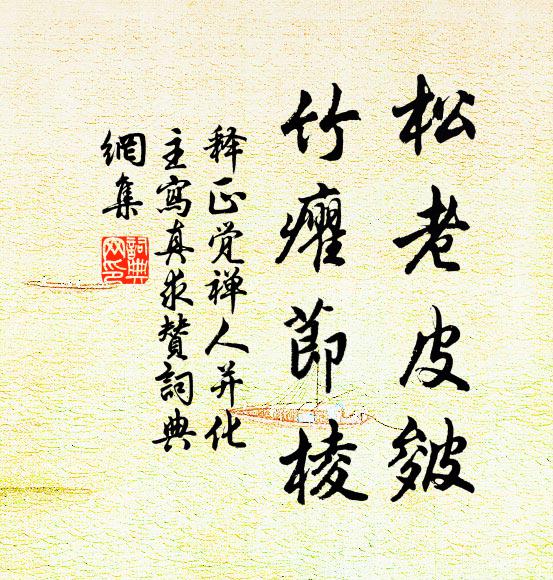 松老皮皴
竹癯節棱
释正觉禅人并化
主寫真求赞詞典
網集
詞典网印